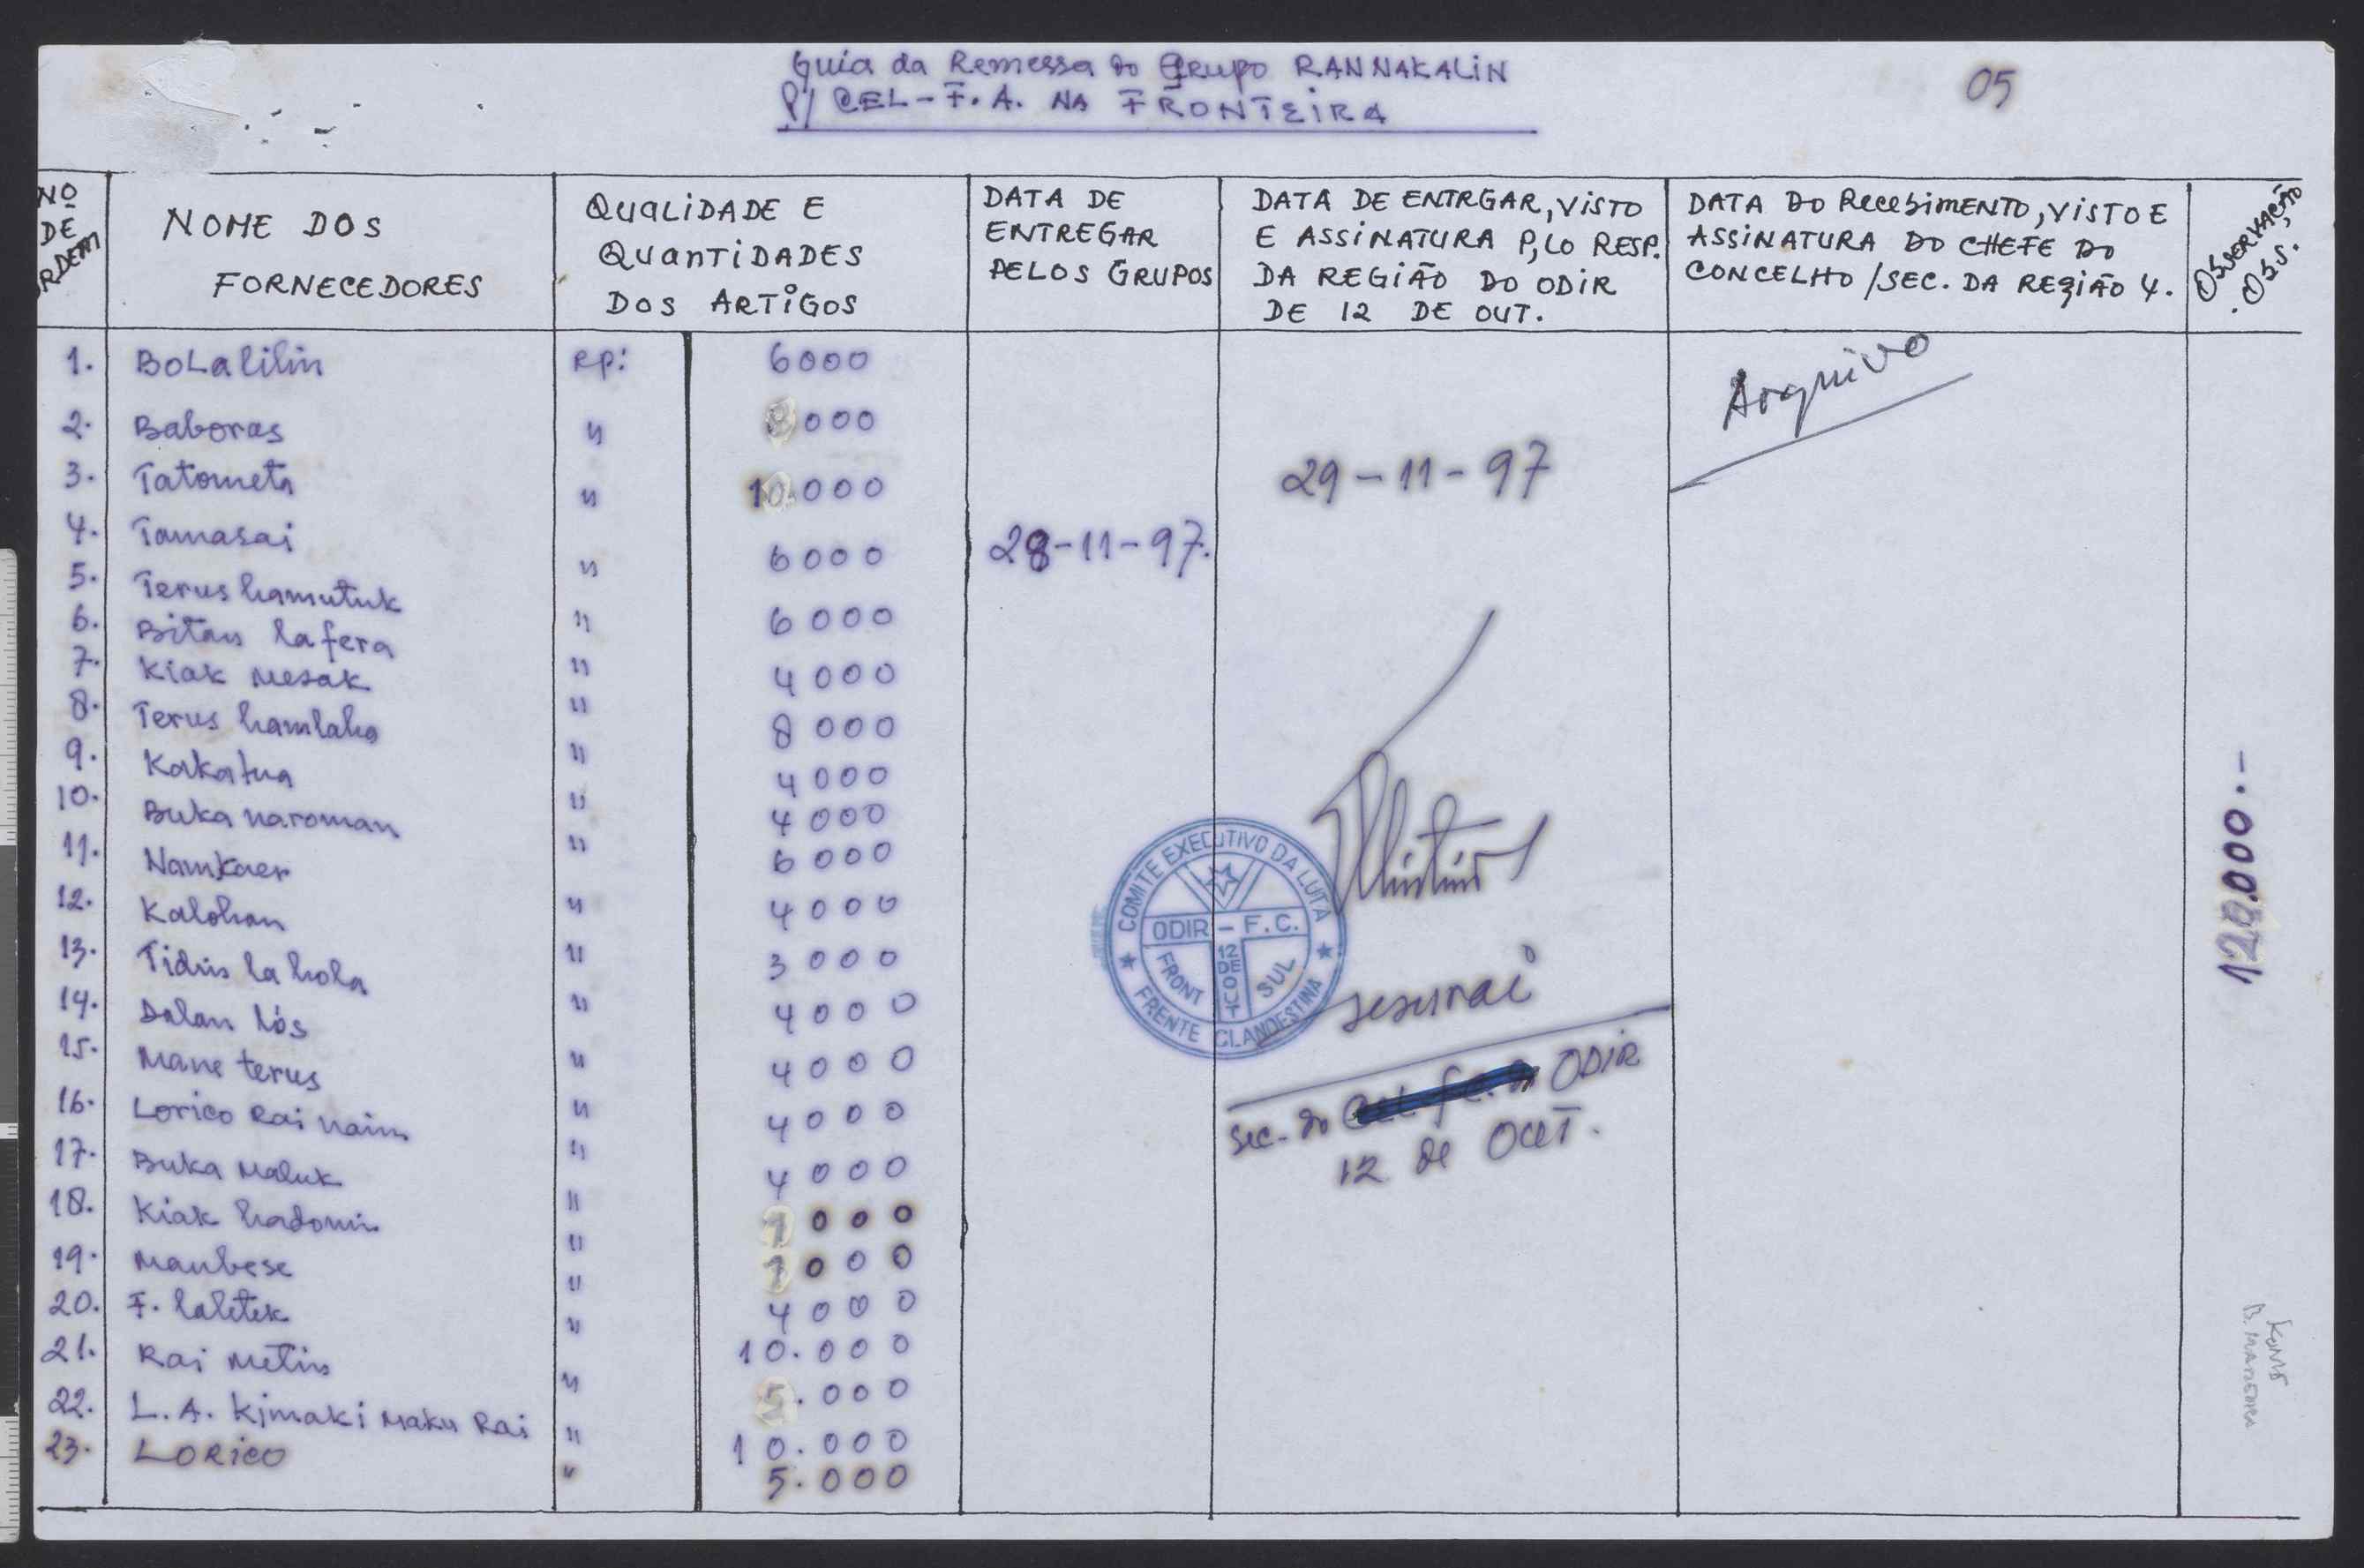 Guia da Remessa do Grupo RANNAKALIN
P/ CEL-F.A. NA FRONTEIRA
05
Nº DE ORDEM
NOME DOS FORNECEDORES
QUALIDADE E QUANTIDADES DOS ARTIGOS
DATA DE ENTREGAR PELOS GRUPOS
DATA DE ENTRGAR, VISTO E ASSINATURA P,LO RESP. DA REGIÃO DO ODIR DE 12 DE OUT.
DATA DO RecebiMENTO, VISTO E ASSINATURA DO CHEFE DO CONCELHO /SEC. DA REGIÃO 4.
OBSERVAÇÃO, OBS.
1. BoLalilin RP: 6000
2. Baboras " 8000
3. Tatometa " 10.000
4. Tamasai " 6000
5. Terus hamutuk " 6000
6. Bitan lafera " 4000
7. Kiak Mesak " 8000
8. Terus hamlaha " 4000
9. Kakatua " 4000
10. Buka naroman " 6000
11. Namkaer " 4000
12. Kalohan " 3000
13. Tidin la hola " 4000
14. Dalan lós " 4000
15. Mane terus " 4000
16. Lorico Rai nain " 4000
17. Buka Maluk " 000
18. Kiak hadomi " 000
19. Maubese " 4000
20. F. laletek " 10.000
21. Rai Metin " 5.000
22. L.A. Kimaki Maku Rai " 10.000
23. LORICO " 5.000
28-11-97.
29-11-97
Arquivo
COMITE EXECUTIVO DA LUTA
ODIR - F.C.
FRONT SUL
12 DE OUT
FRENTE CLANDESTINA
sec. do ODIR
12 de OUT.
000.-